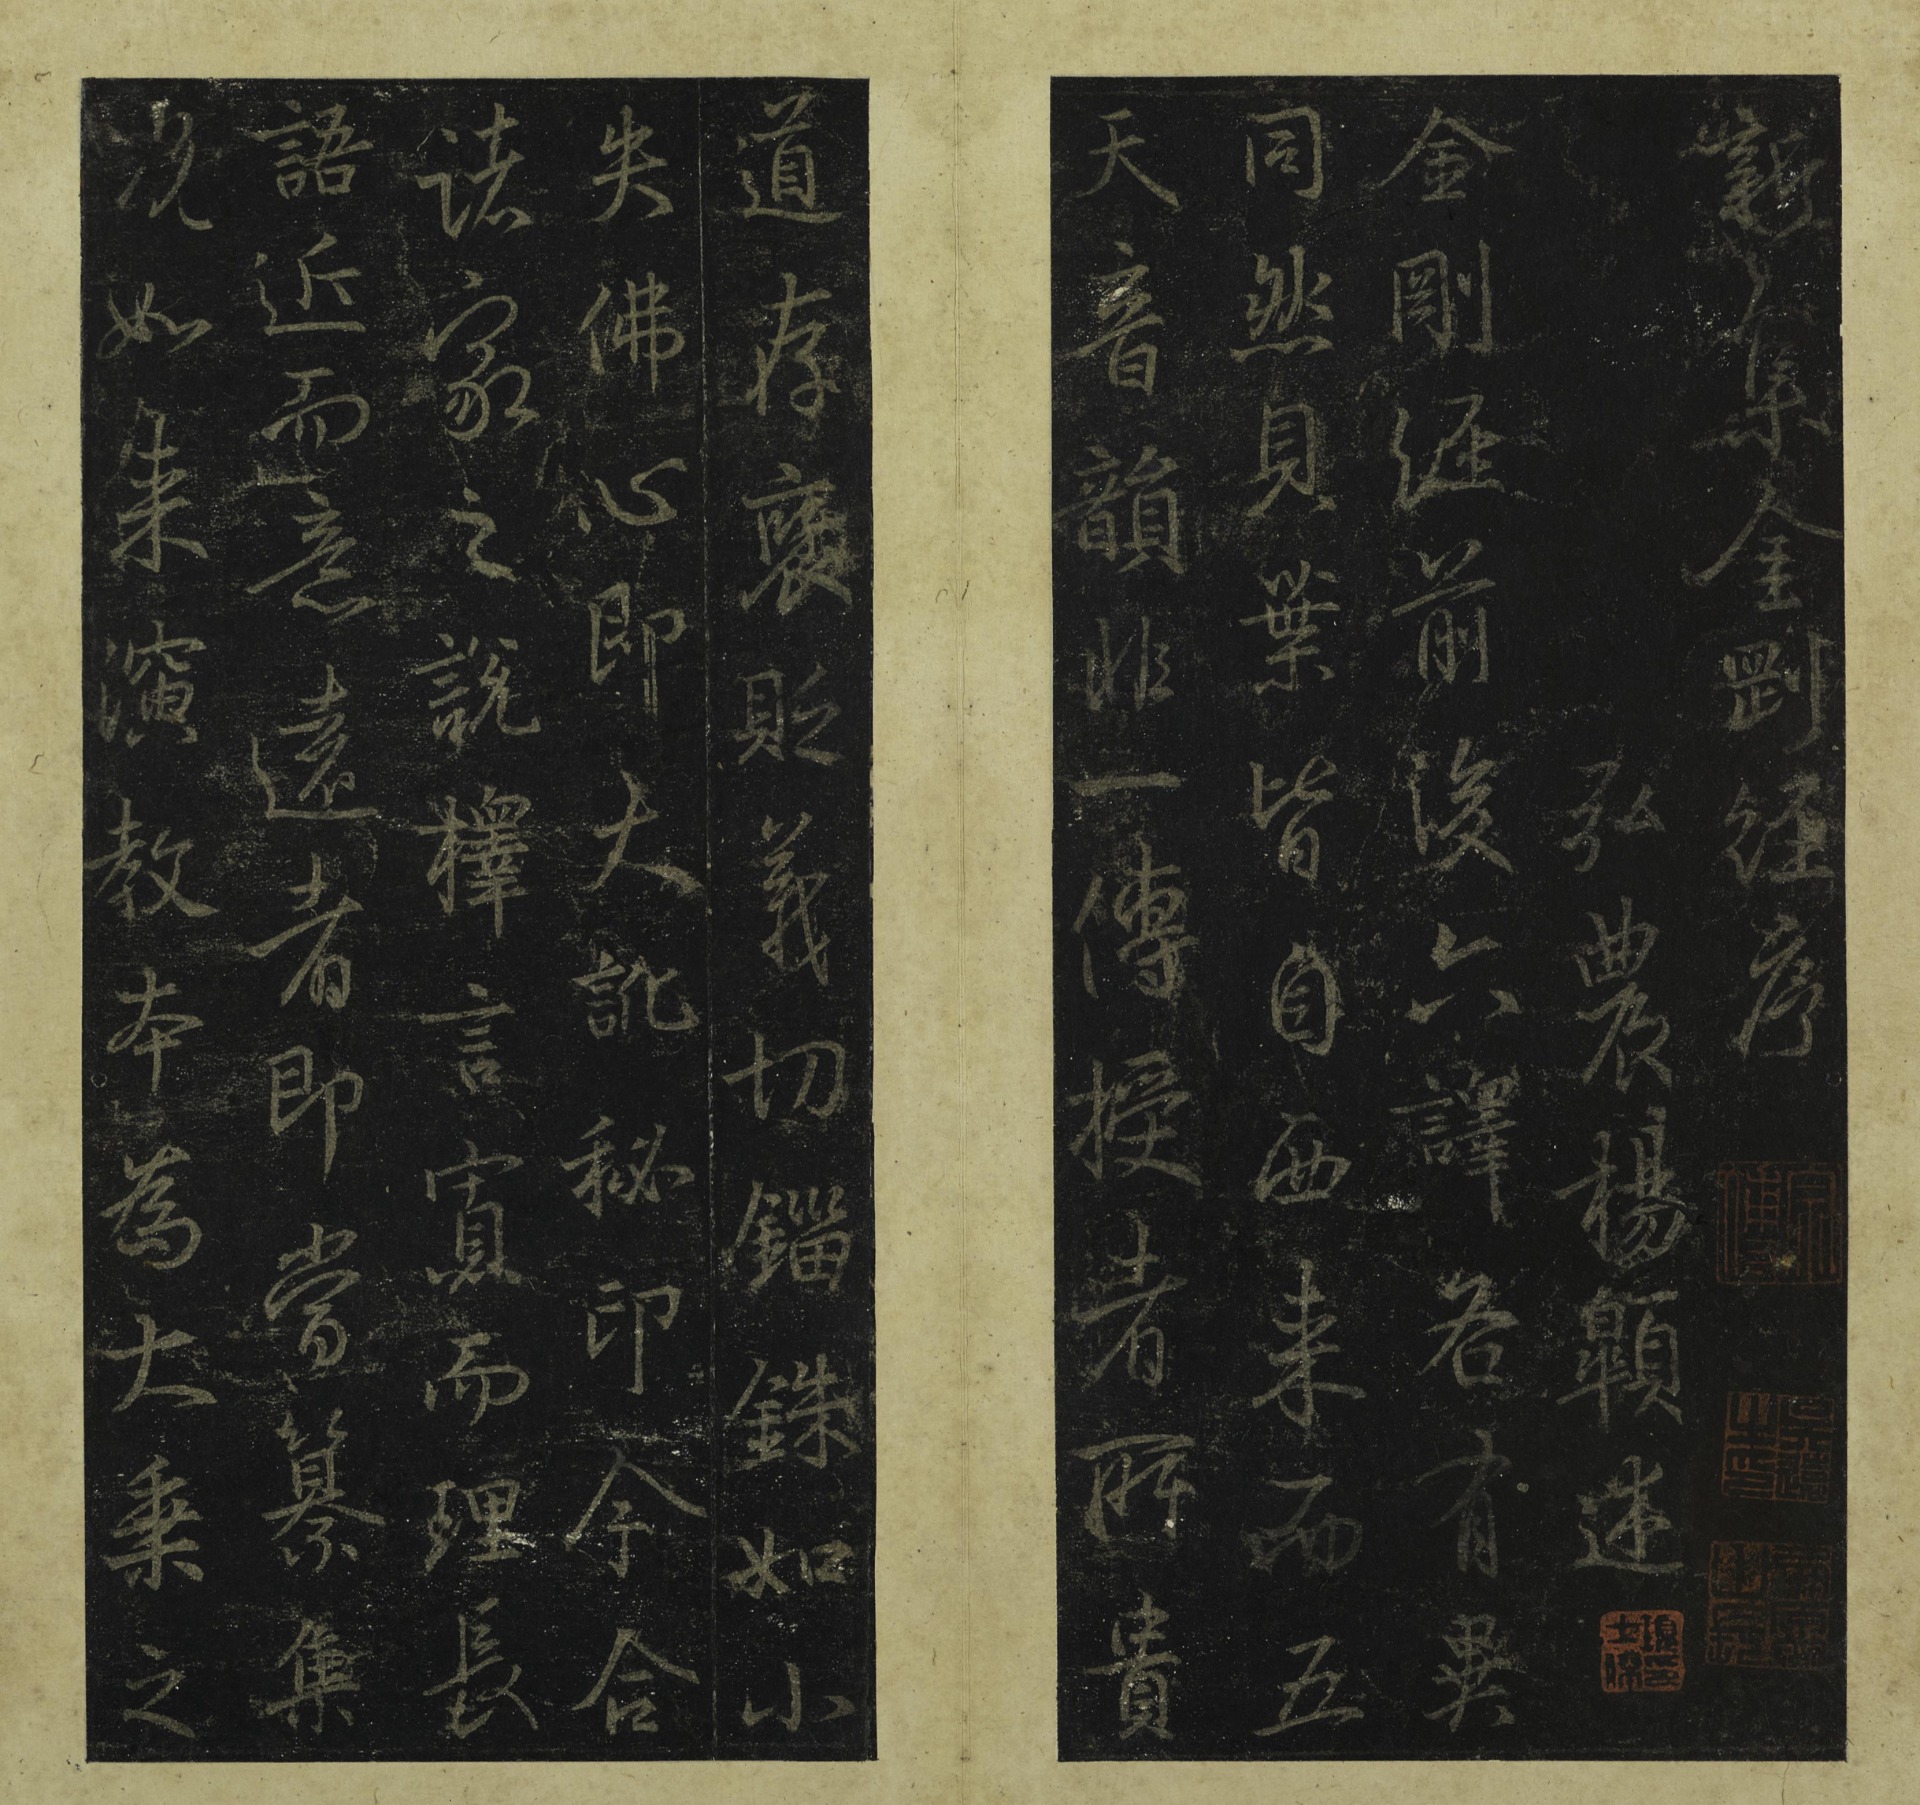 新集金剛經序
弘農楊顗述
金剛經前後六譯各有異
同然貝葉皆自西来而五
天音韻非一傳授者所貴
道存褒貶義切錙銖如小
失佛心即大訛秘印今合
諸家之說擇言寘而理長
語近而意遠者即當纂集
况如来演教本為大乘之